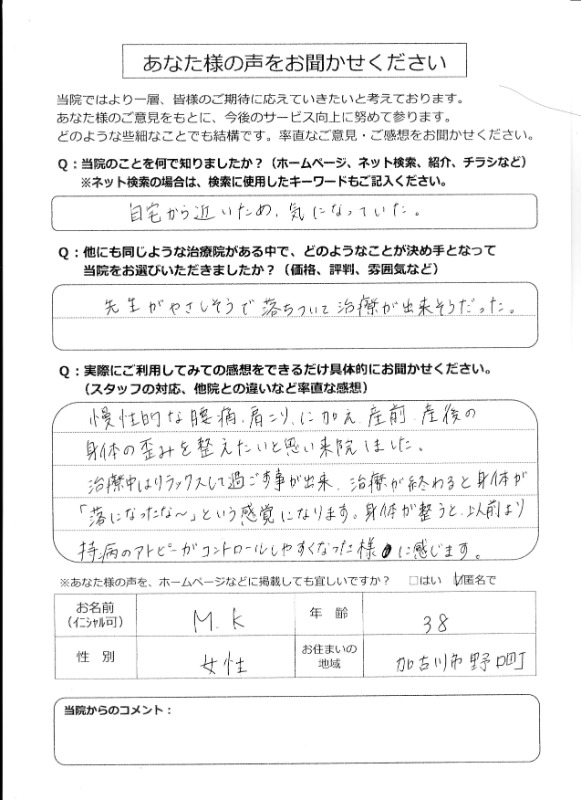 あなた様の声をお聞かせください
当院ではより一層、皆様のご期待に応えていきたいと考えております。
あなた様のご意見をもとに、今後のサービス向上に努めて参ります。
どのような些細なことでも結構です。率直なご意見・ご感想をお聞かせください。
Q：当院のことを何で知りましたか？（ホームページ、ネット検索、紹介、チラシなど）
※ネット検索の場合は、検索に使用したキーワードもご記入ください。
自宅から近いため、気になっていた。
Q：他にも同じような治療院がある中で、どのようなことが決め手となって
当院をお選びいただきましたか？（価格、評判、雰囲気など）
先生がやさしそうで落ちついて治療が出来そうだった。
Q：実際にご利用してみての感想をできるだけ具体的にお聞かせください。
（スタッフの対応、他院との違いなど率直な感想）
慢性的な腰痛、肩こり、に加え、産前、産後の
身体の歪みを整えたいと思い来院しました。
治療中はリラックスして過ごす事が出来、治療が終わると身体が
「落になったな〜」という感覚になります。身体が整うと、以前より
持病のアトピーがコントロールしやすくなった様に感じます。
※あなた様の声を、ホームページなどに掲載しても宜しいですか？ □はい ☑匿名で
お名前 M.K 年 齢 38
（イニシャル可）
性 別 女性 お住まいの地域 加古川市野口町
当院からのコメント：